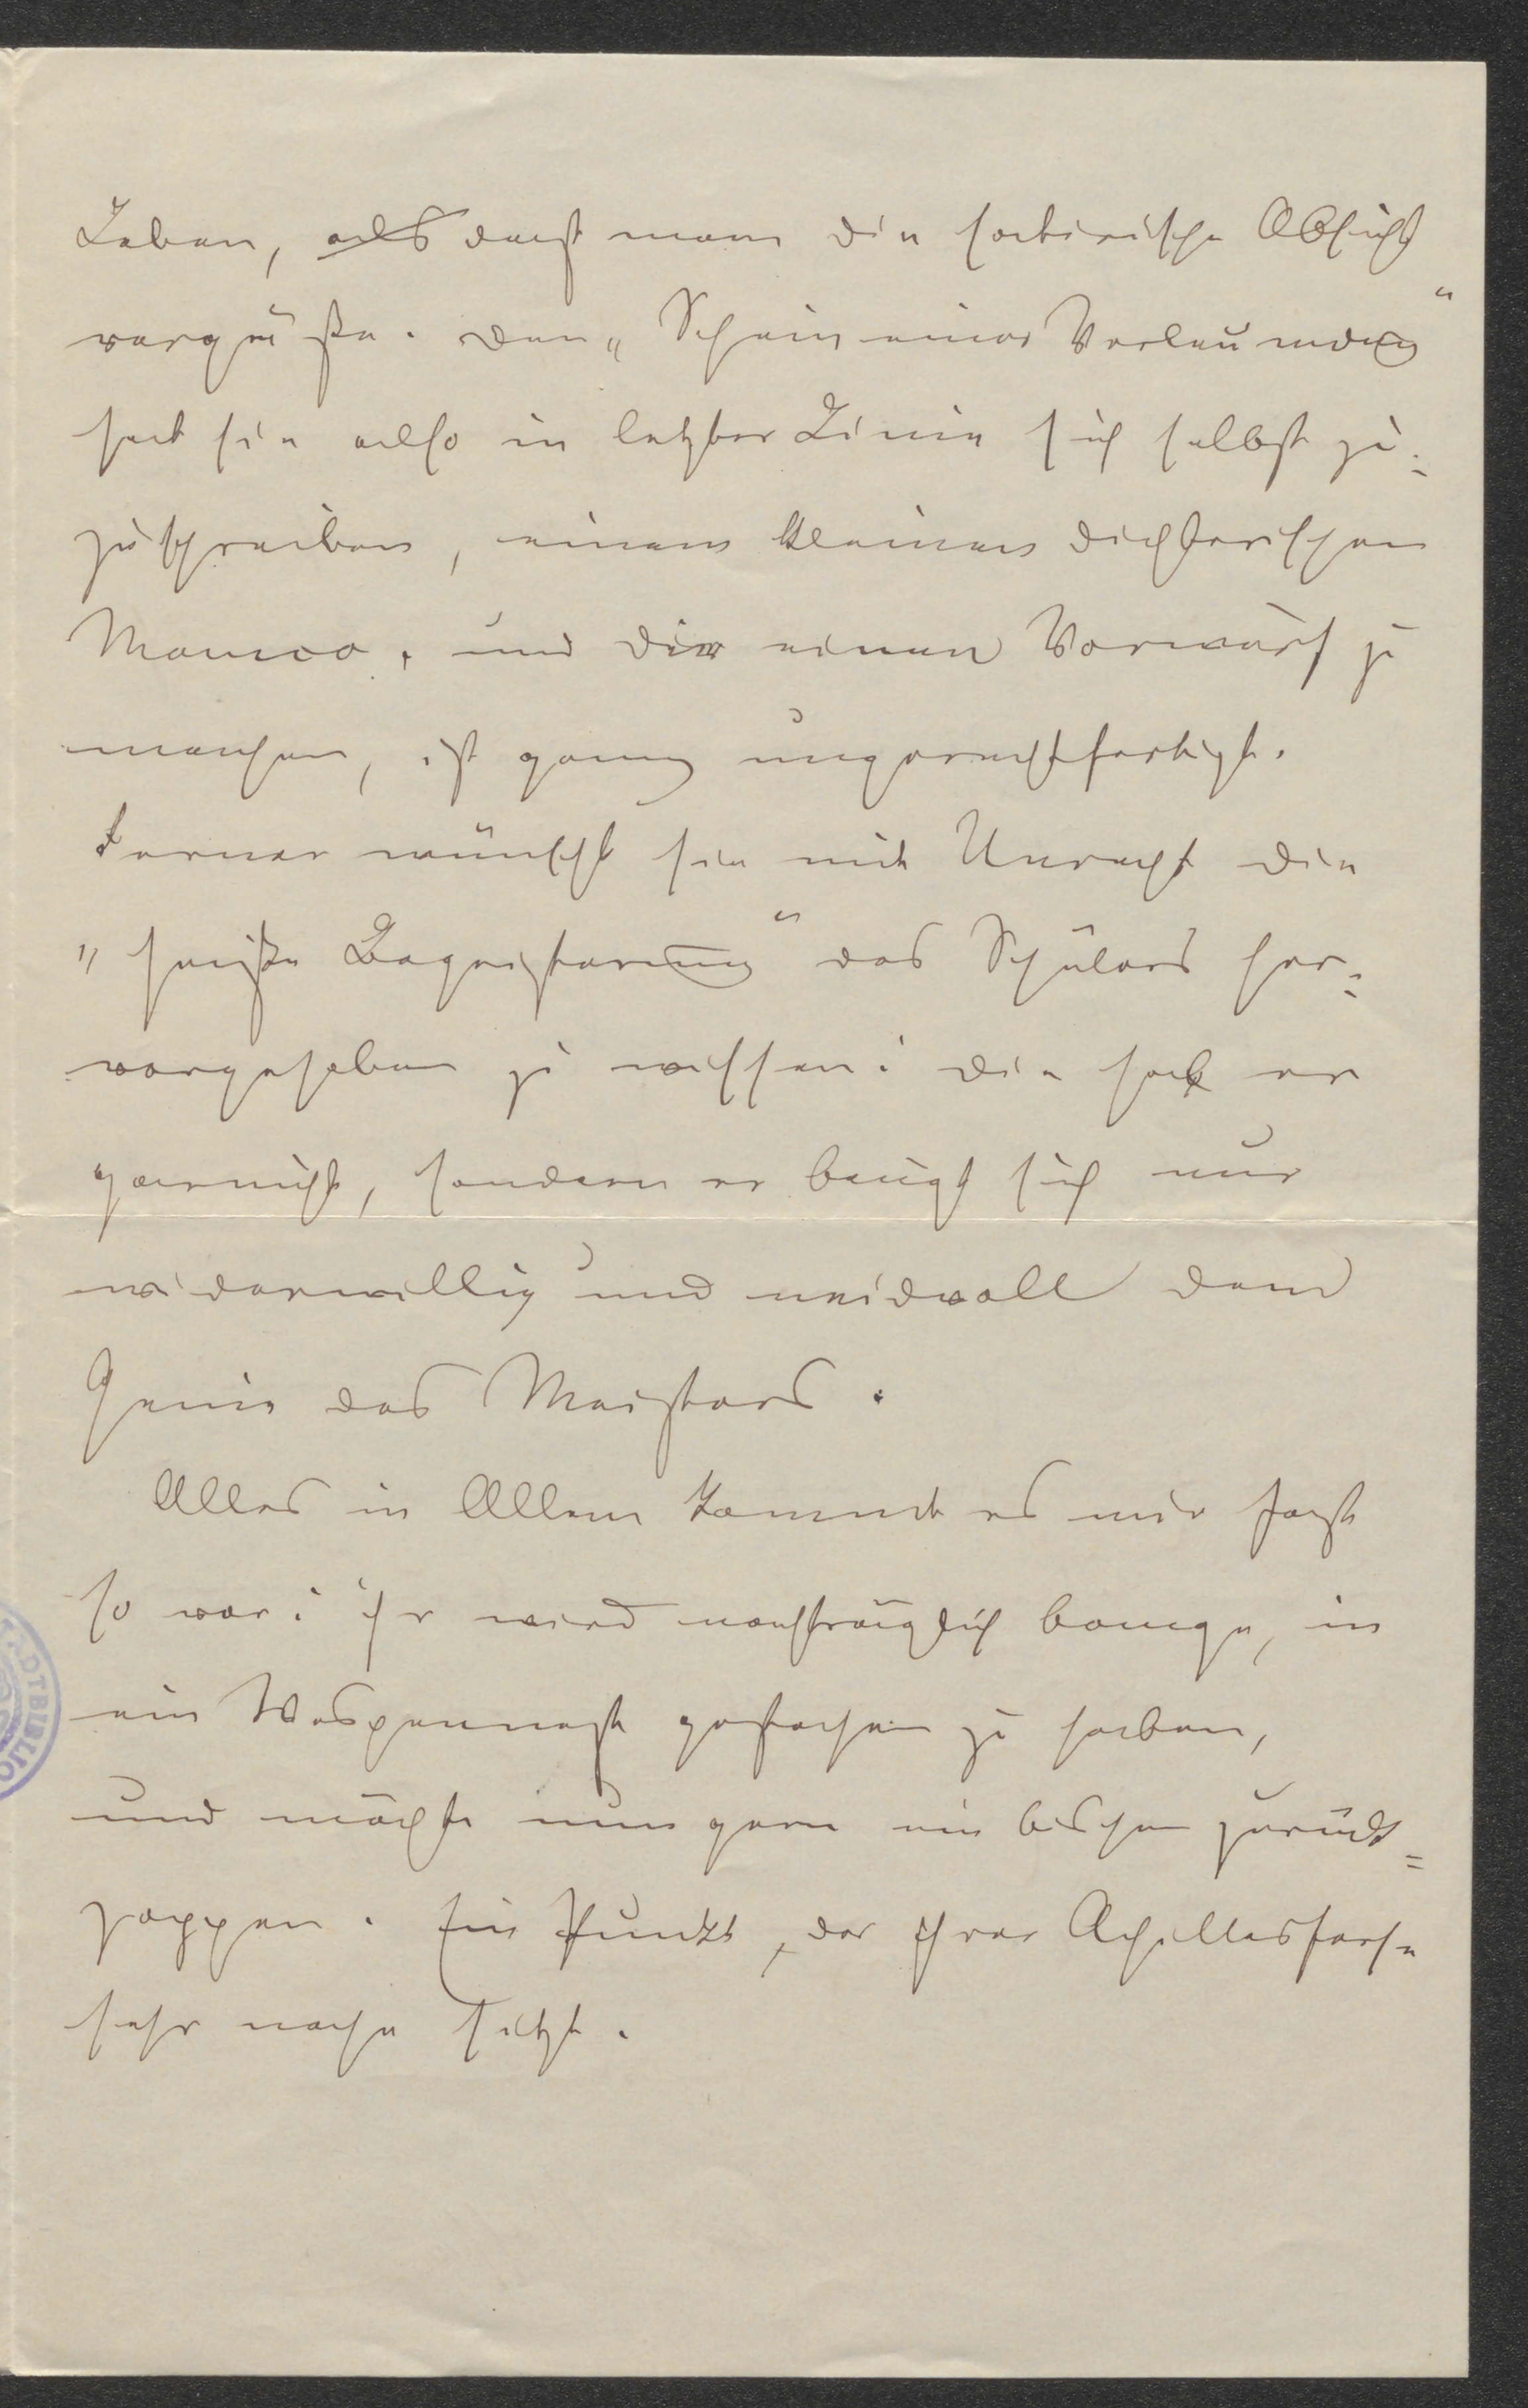 Leben, als daß man die satirische Absicht
vergäße. Den „Schein einer Verleumdung“
hat sie also in letzter Linie sich selbst zu-
zuschreiben, einem kleinen dichterischen
Manco, und Dir einen Vorwurf zu
machen, ist ganz ungerechtfertigt.
Ferner wünscht sie mit Unrecht die
„heiße Begeisterung“ des Schülers her-
vorgehoben zu wissen: die hat er
garnicht, sondern er beugt sich nur
widerwillig und neidvoll dem
Genie des Meisters.
Alles in Allem kommt es mir fast
so vor: ihr wird nachträglich bange, in
ein Wespennest gestochen zu haben,
und möchte nun gern ein bischen zurück-
zoppen. Ein Punkt, der ihrer Achillesferse
sehr nahe sitzt.